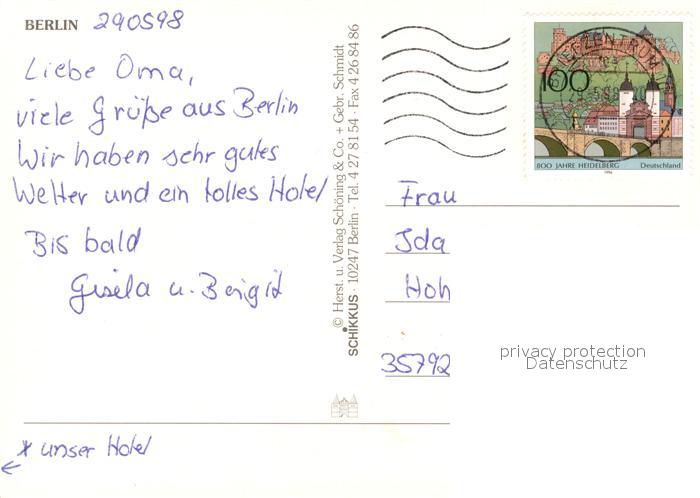 BERLIN 290598
Liebe Oma,
viele Grüße aus Berlin
Wir haben sehr gutes
Wetter und ein tolles Hotel
Bis bald
Gisela u. Birgit
* unser Hotel
←
© Herst. u. Verlag Schöning & Co. + Gebr. Schmidt
SCHIKKUS · 10247 Berlin · Tel. 4 27 81 54 · Fax 4 26 84 86
100
800 JAHRE HEIDELBERG Deutschland
1996
Frau
Ida
Hoh
35792
privacy protection
Datenschutz